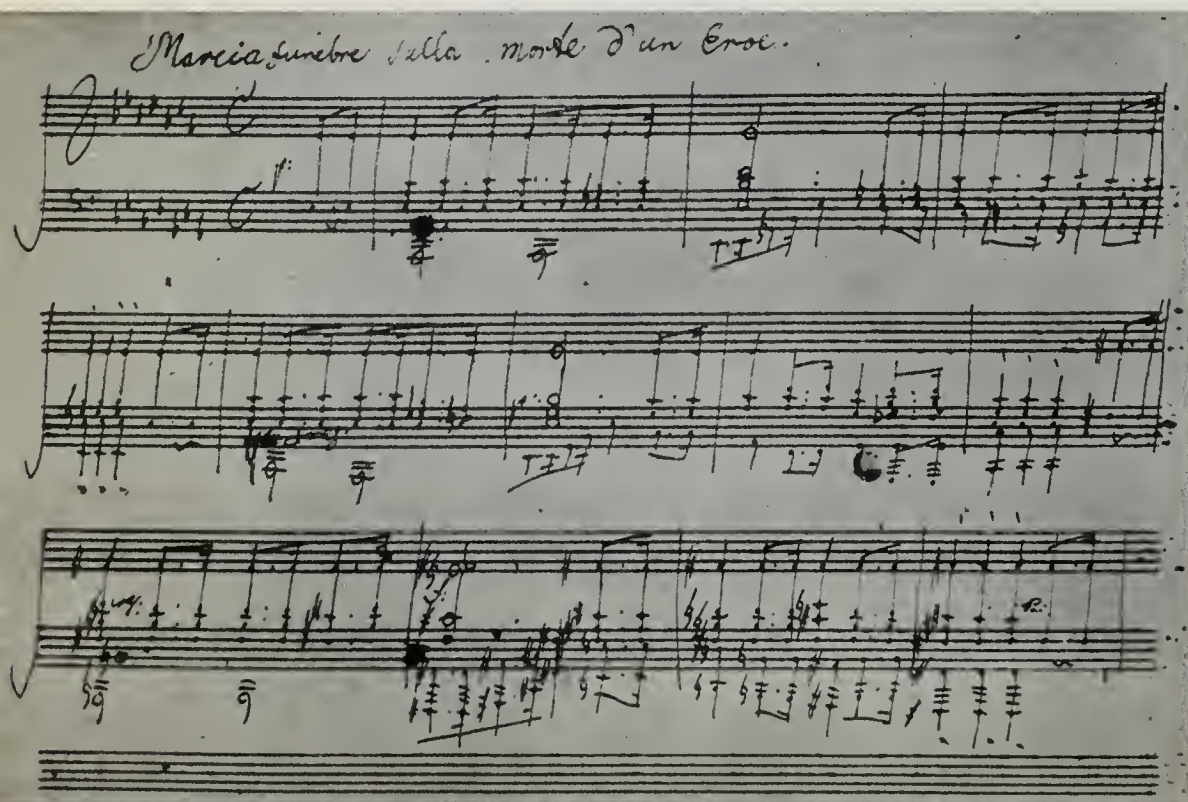 Marcia funebre sulla morte d'un Eroe.